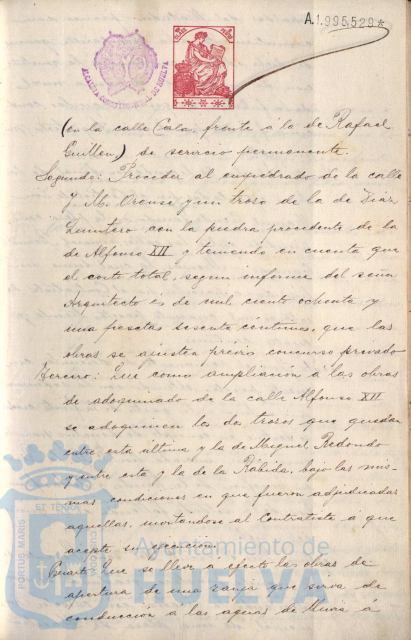 A.1.995.529*
ALCALDIA CONSTITUCIONAL DE HUELVA
(en la calle Cala, frente á la de Rafael
Guillen) de servicio permanente.
Segundo: Proceder al empedrado de la calle
J. M. Orense y un trozo de la de Diaz
Quintero con la piedra procedente de la
de Alfonso XII y teniendo en cuenta que
el coste total, segun informe del señor
Arquitecto es de mil ciento ochenta y
una pesetas sesenta céntimos, que las
obras se ajusten prévio concurso privado
Tercero: Que como ampliación á las obras
de adoquinado de la calle Alfonso XII
se adoquinen los dos trozos que quedan
entre esta última y la de Miguel Redondo
y entre esta y la de la Rábida, bajo las mis-
mas condiciones en que fueron adjudicadas
aquellas, invitándose al Contratista á que
acepte su ejecución.
Cuarto: Que se lleve á efecto las obras de
apertura de una zanja que sirva de
conducción á las aguas de lluvia á
PORTUS MARIS
ET TERRAE
CUSTODIA
Ayuntamiento de
HUELVA